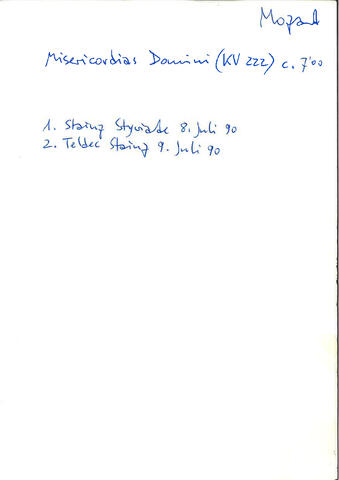 Mozart
Misericordias Domini (KV 222) c. 7'00
1. Stainz Styriarte 8. Juli 90
2. Teldec Stainz 9. Juli 90